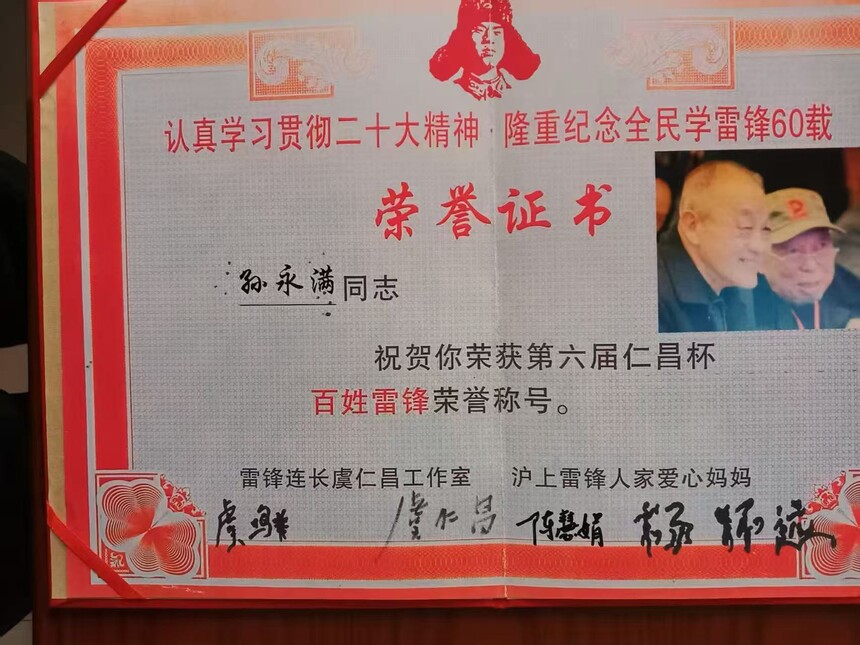 认真学习贯彻二十大精神 隆重纪念全民学雷锋60载
荣誉证书
孙永满同志
祝贺你荣获第六届仁昌杯
百姓雷锋荣誉称号。
雷锋连长虞仁昌工作室 沪上雷锋人家爱心妈妈
虞仁昌 陈慧娟